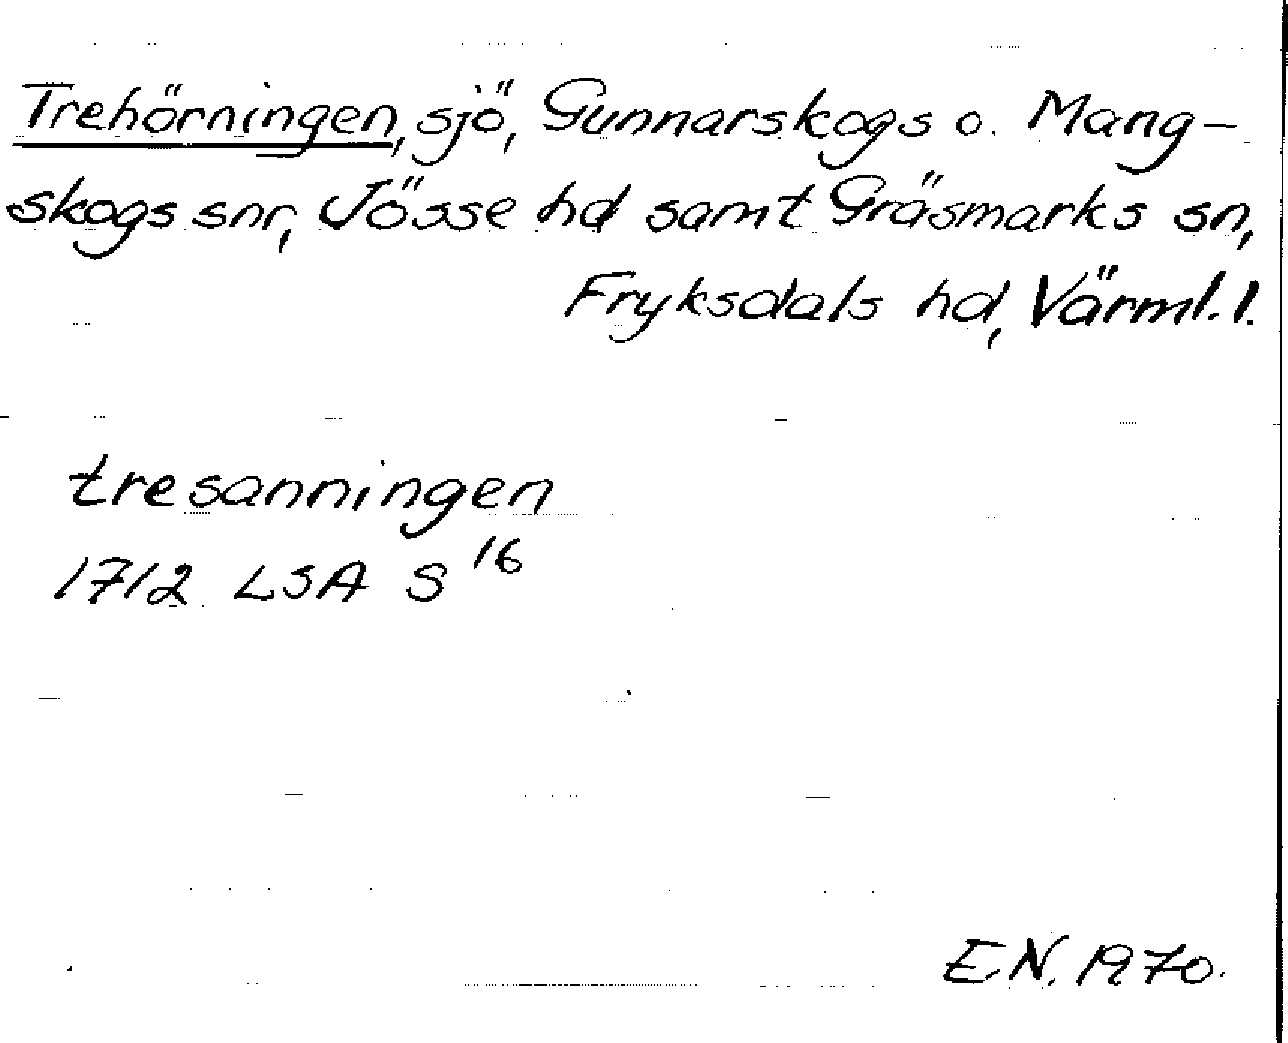 Trehörningen, sjö, Gunnarskogs o. Mang-
skogs snr, Jösse hd samt Gräsmarks sn,
Fryksdals hd, Värml. l.
tresanningen
1712 LSA S 16
EN. 1970.